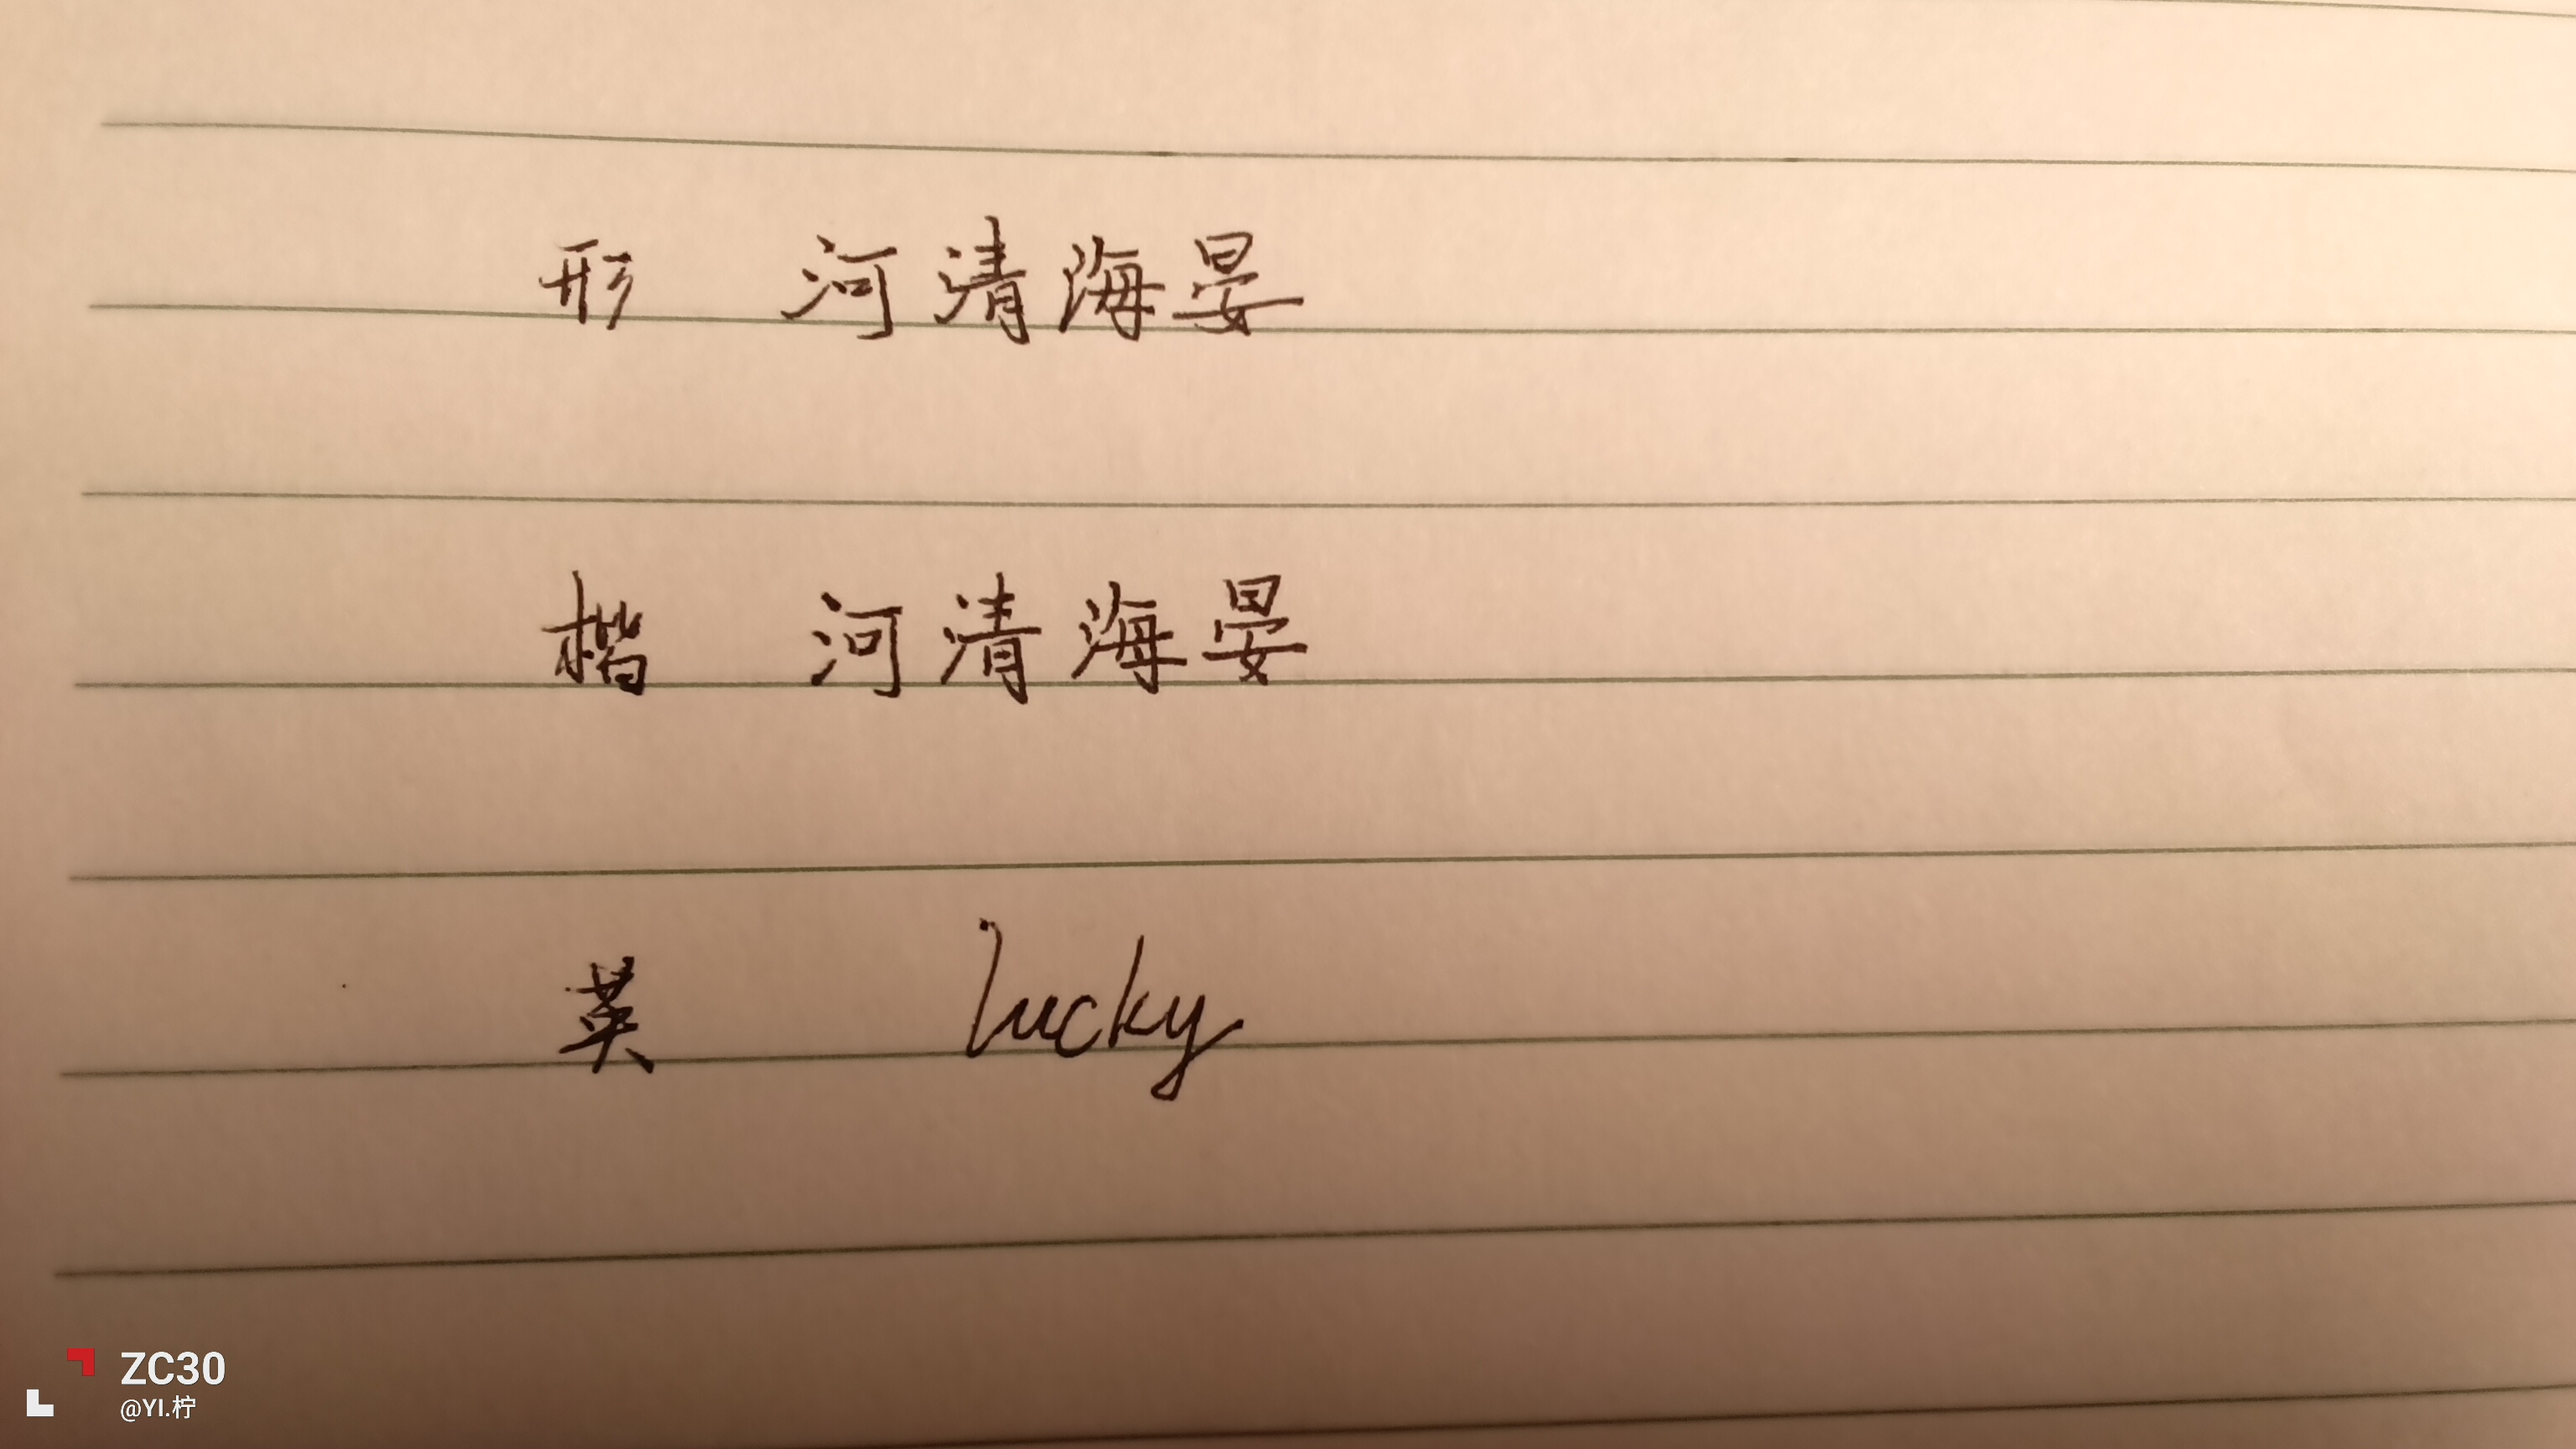 形 河清海晏
楷 河清海晏
英 lucky
ZC30
@YI.柠